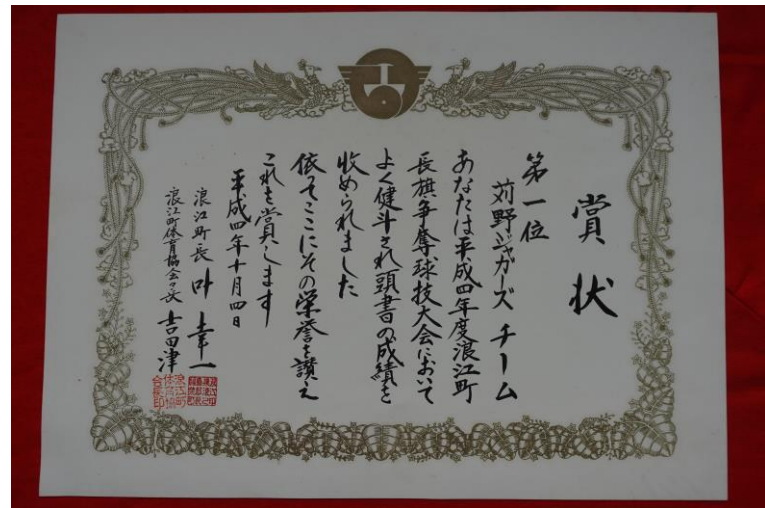 賞状
第一位
苅野ジャガーズ チーム
あなたは平成四年度浪江町
長旗争奪球技大会において
よく健斗され頭書の成績を
収められました
依てここにその栄誉を讃え
これを賞します
平成四年十月四日
浪江町長 叶幸一
浪江町体育協会々長 吉田津